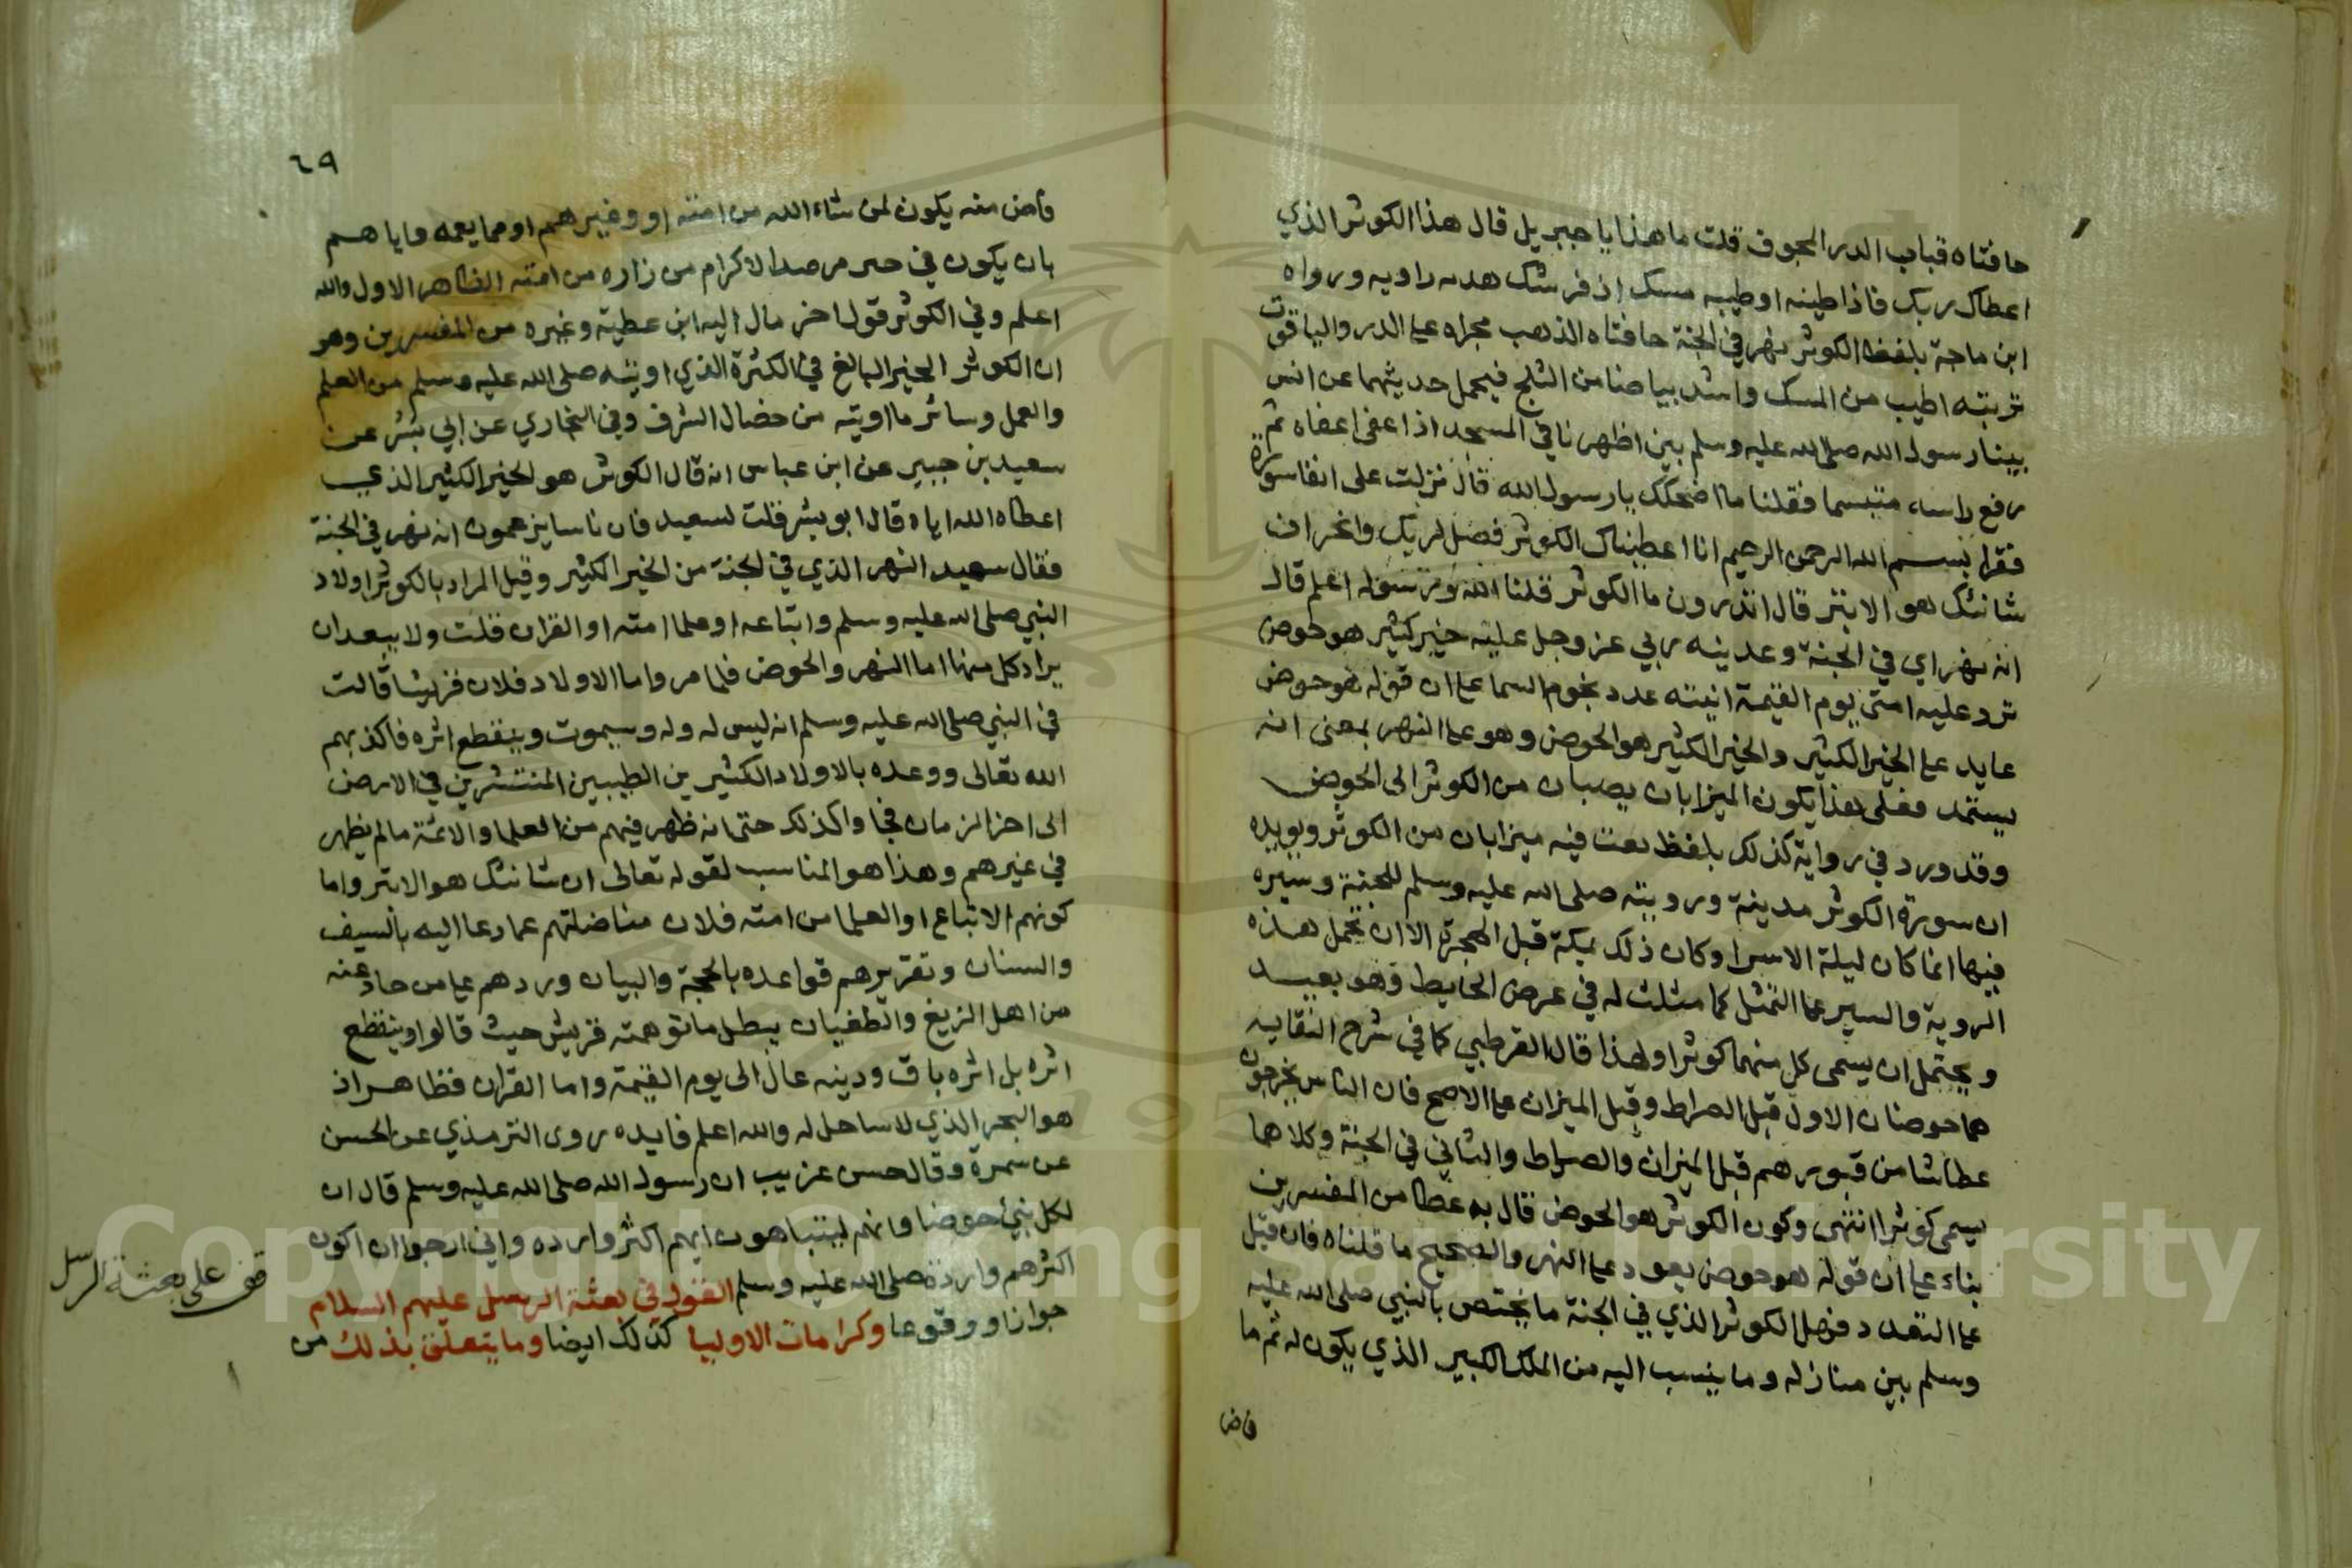 حافتاه قباب الدر المجوف قلت ما هذا يا جبريل قال هذا الكوثر الذي
اعطاك ربك فاذا طينه او طيبه مسك اذفر شك هدبه راويه ورواه
ابن ماجة بلفظ الكوثر نهر في الجنة حافتاه الذهب مجراه على الدر والياقوت
تربته اطيب من المسك واشد بياضا من الثلج فيحمل حديثهما عن انس
بينا رسول الله صلى الله عليه وسلم بين اظهرنا في المسجد اذا اغفى اغفاه ثم
رفع راسه متبسما فقلنا ما اضحكك يا رسول الله قال نزلت على انفا سورة
فقرا بسم الله الرحمن الرحيم انا اعطيناك الكوثر فصل لربك وانحر ان
شانئك هو الابتر قال اتدرون ما الكوثر قلنا الله ورسوله اعلم قال
انه نهر اي في الجنة وعدينه ربي عز وجل عليه خير كثير هو حوض
ترد عليه امتي يوم القيمة انيته عدد نجوم السما على ان قوله هو حوض
عايد على الخير الكثير والخير الكثير هو الحوض وهو على النهر بمعنى انه
يستمد فعلى هذا يكون الميزابان يصبان من الكوثر الى الحوض
وقد ورد في رواية كذلك بلفظ يعت فيه ميزابان من الكوثر ويويده
ان سورة الكوثر مدينة ورويته صلى الله عليه وسلم للجنة وسيره
فيها انما كان ليلة الاسرا وكان ذلك بمكة قبل الهجرة الا ان تحمل هذه
الروية والسير على التمثل كما مثلت له في عرض الحايط وهو بعيد
ويحتمل ان يسمى كل منهما كوثرا ولهذا قال القرطبي كما في شرح النقايه
هما حوضان الاول قبل الصراط وقبل الميزان على الاصح فان الناس يخرجون
عطاشا من قبورهم قبل الميزان والصراط والثاني في الجنة وكلاهما
يسمى كوثرا انتهى وكون الكوثر هو الحوض قال به عطا من المفسرين
بناء على ان قوله هو حوض يعود على النهر والصحيح ما قلناه فان قيل
على التعدد فهل الكوثر الذي في الجنة ما يختص بالنبي صلى الله عليه
وسلم بين منازله وما ينسب اليه من الملك الكبير الذي يكون له ثم ما
فاض
٦٩
فاض منه يكون لمن شاء الله من امته او وغيرهم او مما يعمه واياهم
بان يكون في مرصد الاكرام من زاره من امته الظاهر الاول والله
اعلم وفي الكوثر قول اخر مال اليه ابن عطية وغيره من المفسرين وهو
ان الكوثر الخير البالغ في الكثرة الذي اوتيه صلى الله عليه وسلم من العلم
والعمل وسائر ما اوتيه من خصال الشرف وفي البخاري عن ابي بشر عن
سعيد بن جبير عن ابن عباس انه قال الكوثر هو الخير الكثير الذي
اعطاه الله اياه قال ابو بشر قلت لسعيد فان ناسا يزعمون انه نهر في الجنة
فقال سعيد النهر الذي في الجنة من الخير الكثير وقيل المراد بالكوثر اولاد
النبي صلى الله عليه وسلم واتباعه او علما امته او القران قلت ولا يبعد ان
يراد كل منها اما النهر والحوض فلما مر واما الاولاد فلان قريشا قالت
في النبي صلى الله عليه وسلم انه ليس له ولد وسيموت وينقطع اثره فاكذبهم
الله تعالى ووعده بالاولاد الكثيرين الطيبين المنتشرين في الارض
الى اخر الزمان فجا واكذلك حتى انه ظهر فيهم من العلما والائمة ما لم يظهر
في غيرهم وهذا هو المناسب لقوله تعالى ان شانئك هو الابتر واما
كونهم الاتباع او العلما من امته فلان مناضلتهم عما دعا اليه بالسيف
والسنان وتقريرهم قواعده بالحجة والبيان وردهم على من حاد عنه
من اهل الزيغ والطغيان يبطل ما توهمته قريش حيث قالوا وينقطع
اثره بل اثره باق ودينه عال الى يوم القيمة واما القران فظاهر اذ
هو البحر الذي لا ساحل له والله اعلم فايده روى الترمذي عن الحسن
عن سمرة وقال حسن غريب ان رسول الله صلى الله عليه وسلم قال ان
لكل نبي حوضا وانهم ليتباهون ايهم اكثر وارده واني ارجوا ان اكون
اكثرهم واردة صلى الله عليه وسلم القول في بعثة الرسل عليهم السلام
جوازا ووقوعا وكرامات الاوليا كذلك ايضا وما يتعلق بذلك من
قف على بعثة الرسل
Copyright © King Saud University